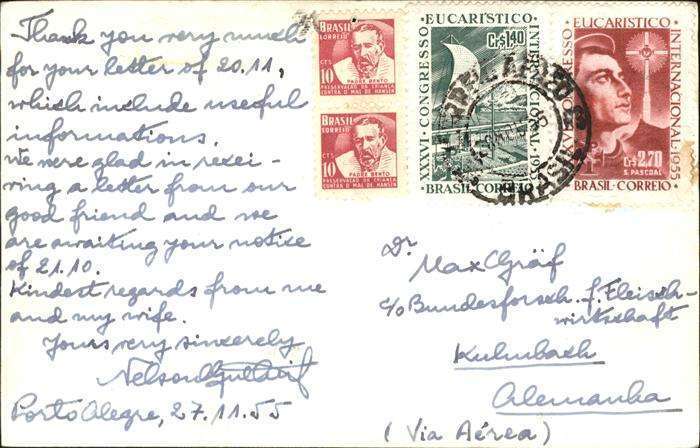 Thank you very much
for your letter of 20.11,
which include useful
informations.
We were glad in recei-
ving a letter from our
good friend and we
are awaiting your notice
of 21.10.
Kindest regards from me
and my wife.
Yours very sincerely
Nelson
Porto Alegre, 27.11.55
BRASIL
CORREIO
CTS
10
PADRE BENTO
PRESERVAÇÃO DA CRIANÇA
CONTRA O MAL DE HANSEN
BRASIL
CORREIO
CTS
10
PADRE BENTO
PRESERVAÇÃO DA CRIANÇA
CONTRA O MAL DE HANSEN
XXXVI CONGRESSO
EUCARÍSTICO
INTERNACIONAL 1955
Cr$ 1,40
BRASIL CORREIO
XXXVI CONGRESSO
EUCARÍSTICO
INTERNACIONAL 1955
Cr$ 2,70
S. PASCOAL
BRASIL-CORREIO
Dr.
Max Gräf
c/o Bundesforsch. f. Fleisch-
wirtschaft
Kulmbach
Alemanha
(Via Aérea)